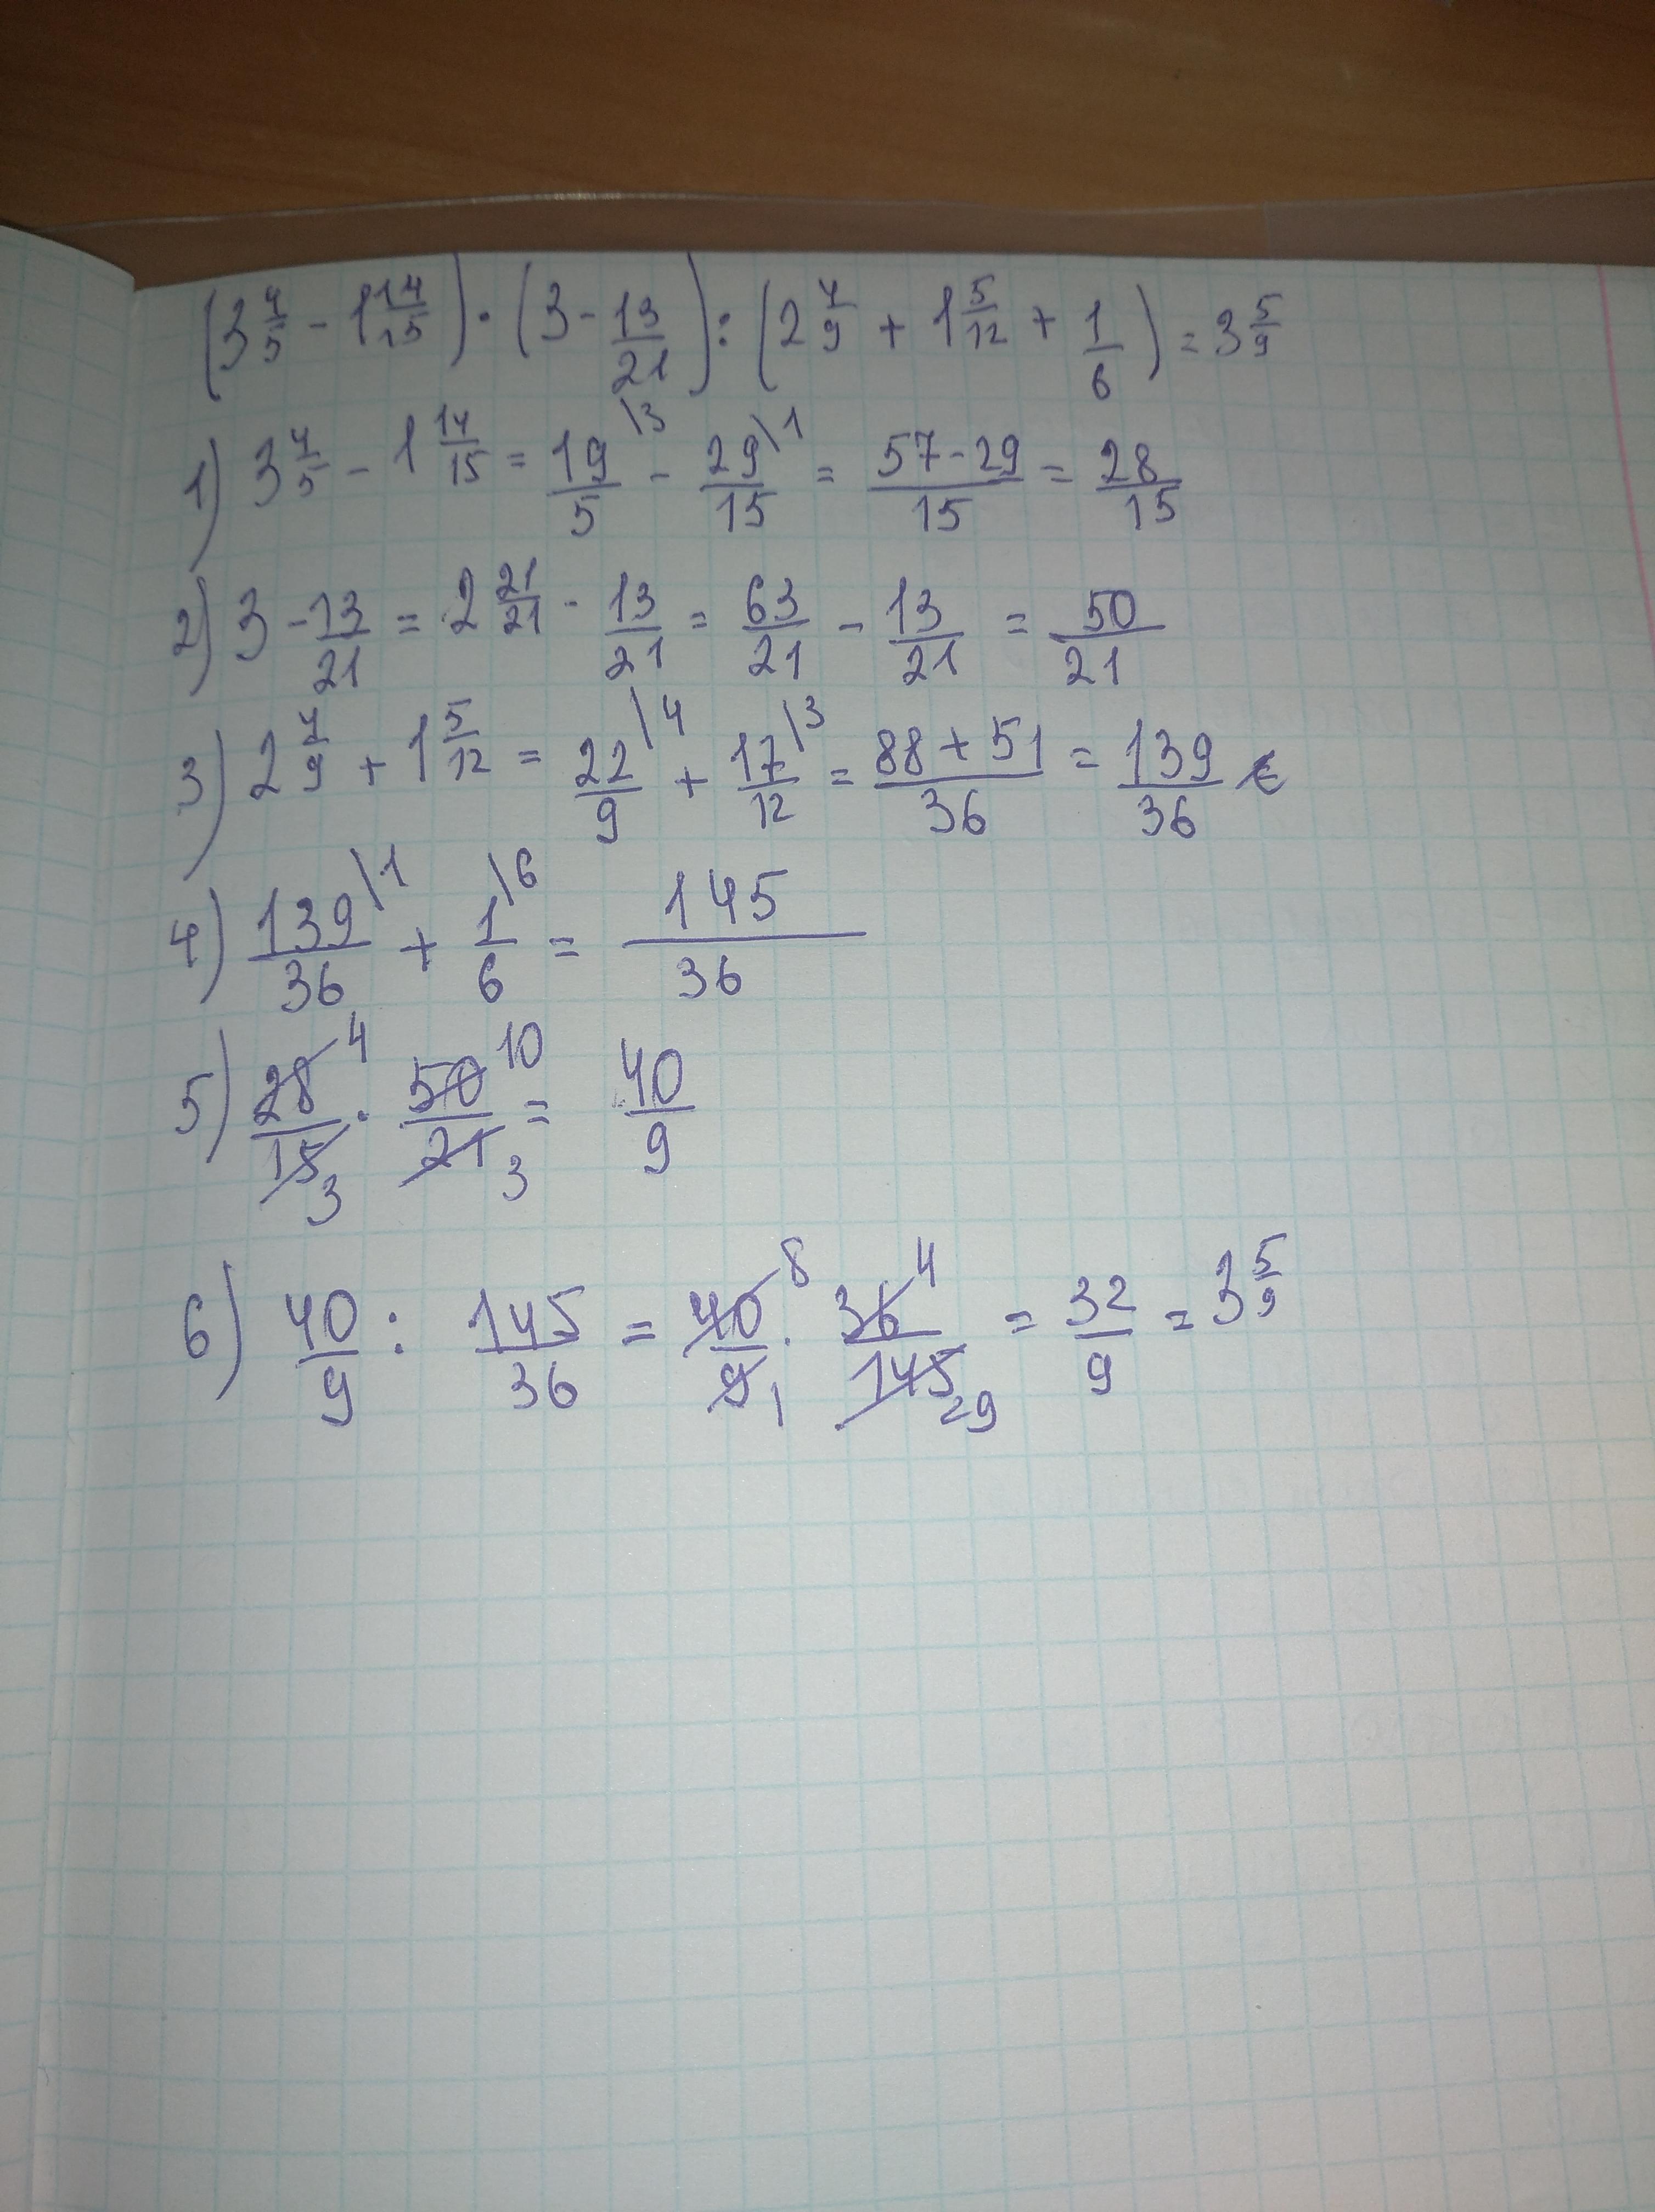 (3 4/5 - 1 14/15) · (3 - 13/21) : (2 4/9 + 1 5/12 + 1/6) = 3 5/9
1) 3 4/5 - 1 14/15 = 19/5 \3 - 29/15 \1 = 57-29/15 = 28/15
2) 3 - 13/21 = 2 21/21 - 13/21 = 63/21 - 13/21 = 50/21
3) 2 4/9 + 1 5/12 = 22/9 \4 + 17/12 \3 = 88+51/36 = 139/36
4) 139/36 \1 + 1/6 \6 = 145/36
5) 28/15 4 3 · 50/21 10 3 = 40/9
6) 40/9 : 145/36 = 40/9 8 1 · 36/145 4 29 = 32/9 = 3 5/9